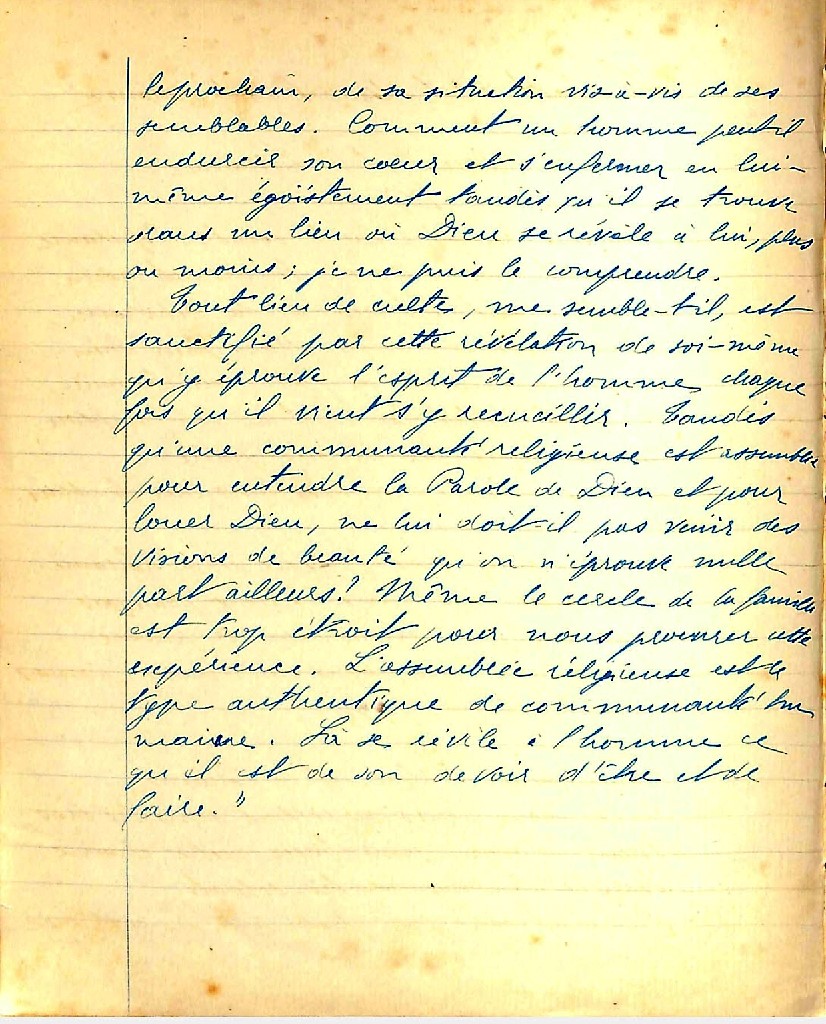 le prochain, de sa situation vis-à-vis de ses
semblables. Comment un homme peut-il
endurcir son coeur et s'enfermer en lui-
même égoïstement tandis qu'il se trouve
dans un lieu où Dieu se révèle à lui, plus
ou moins ; je ne puis le comprendre.
Tout lieu de culte, me semble-t-il, est
sanctifié par cette révélation de soi-même
qu'y éprouve l'esprit de l'homme chaque
fois qu'il vient s'y recueillir. Tandis
qu'une communauté religieuse est assemblée
pour entendre la Parole de Dieu et pour
louer Dieu, ne lui doit-il pas venir des
visions de beauté qu'on n'éprouve nulle
part ailleurs ? Même le cercle de la famille
est trop étroit pour nous procurer cette
expérience. L'assemblée réligieuse est le
type authentique de communauté hu
maine. Là se révèle à l'homme ce
qu'il est de son devoir d'être et de
faire."